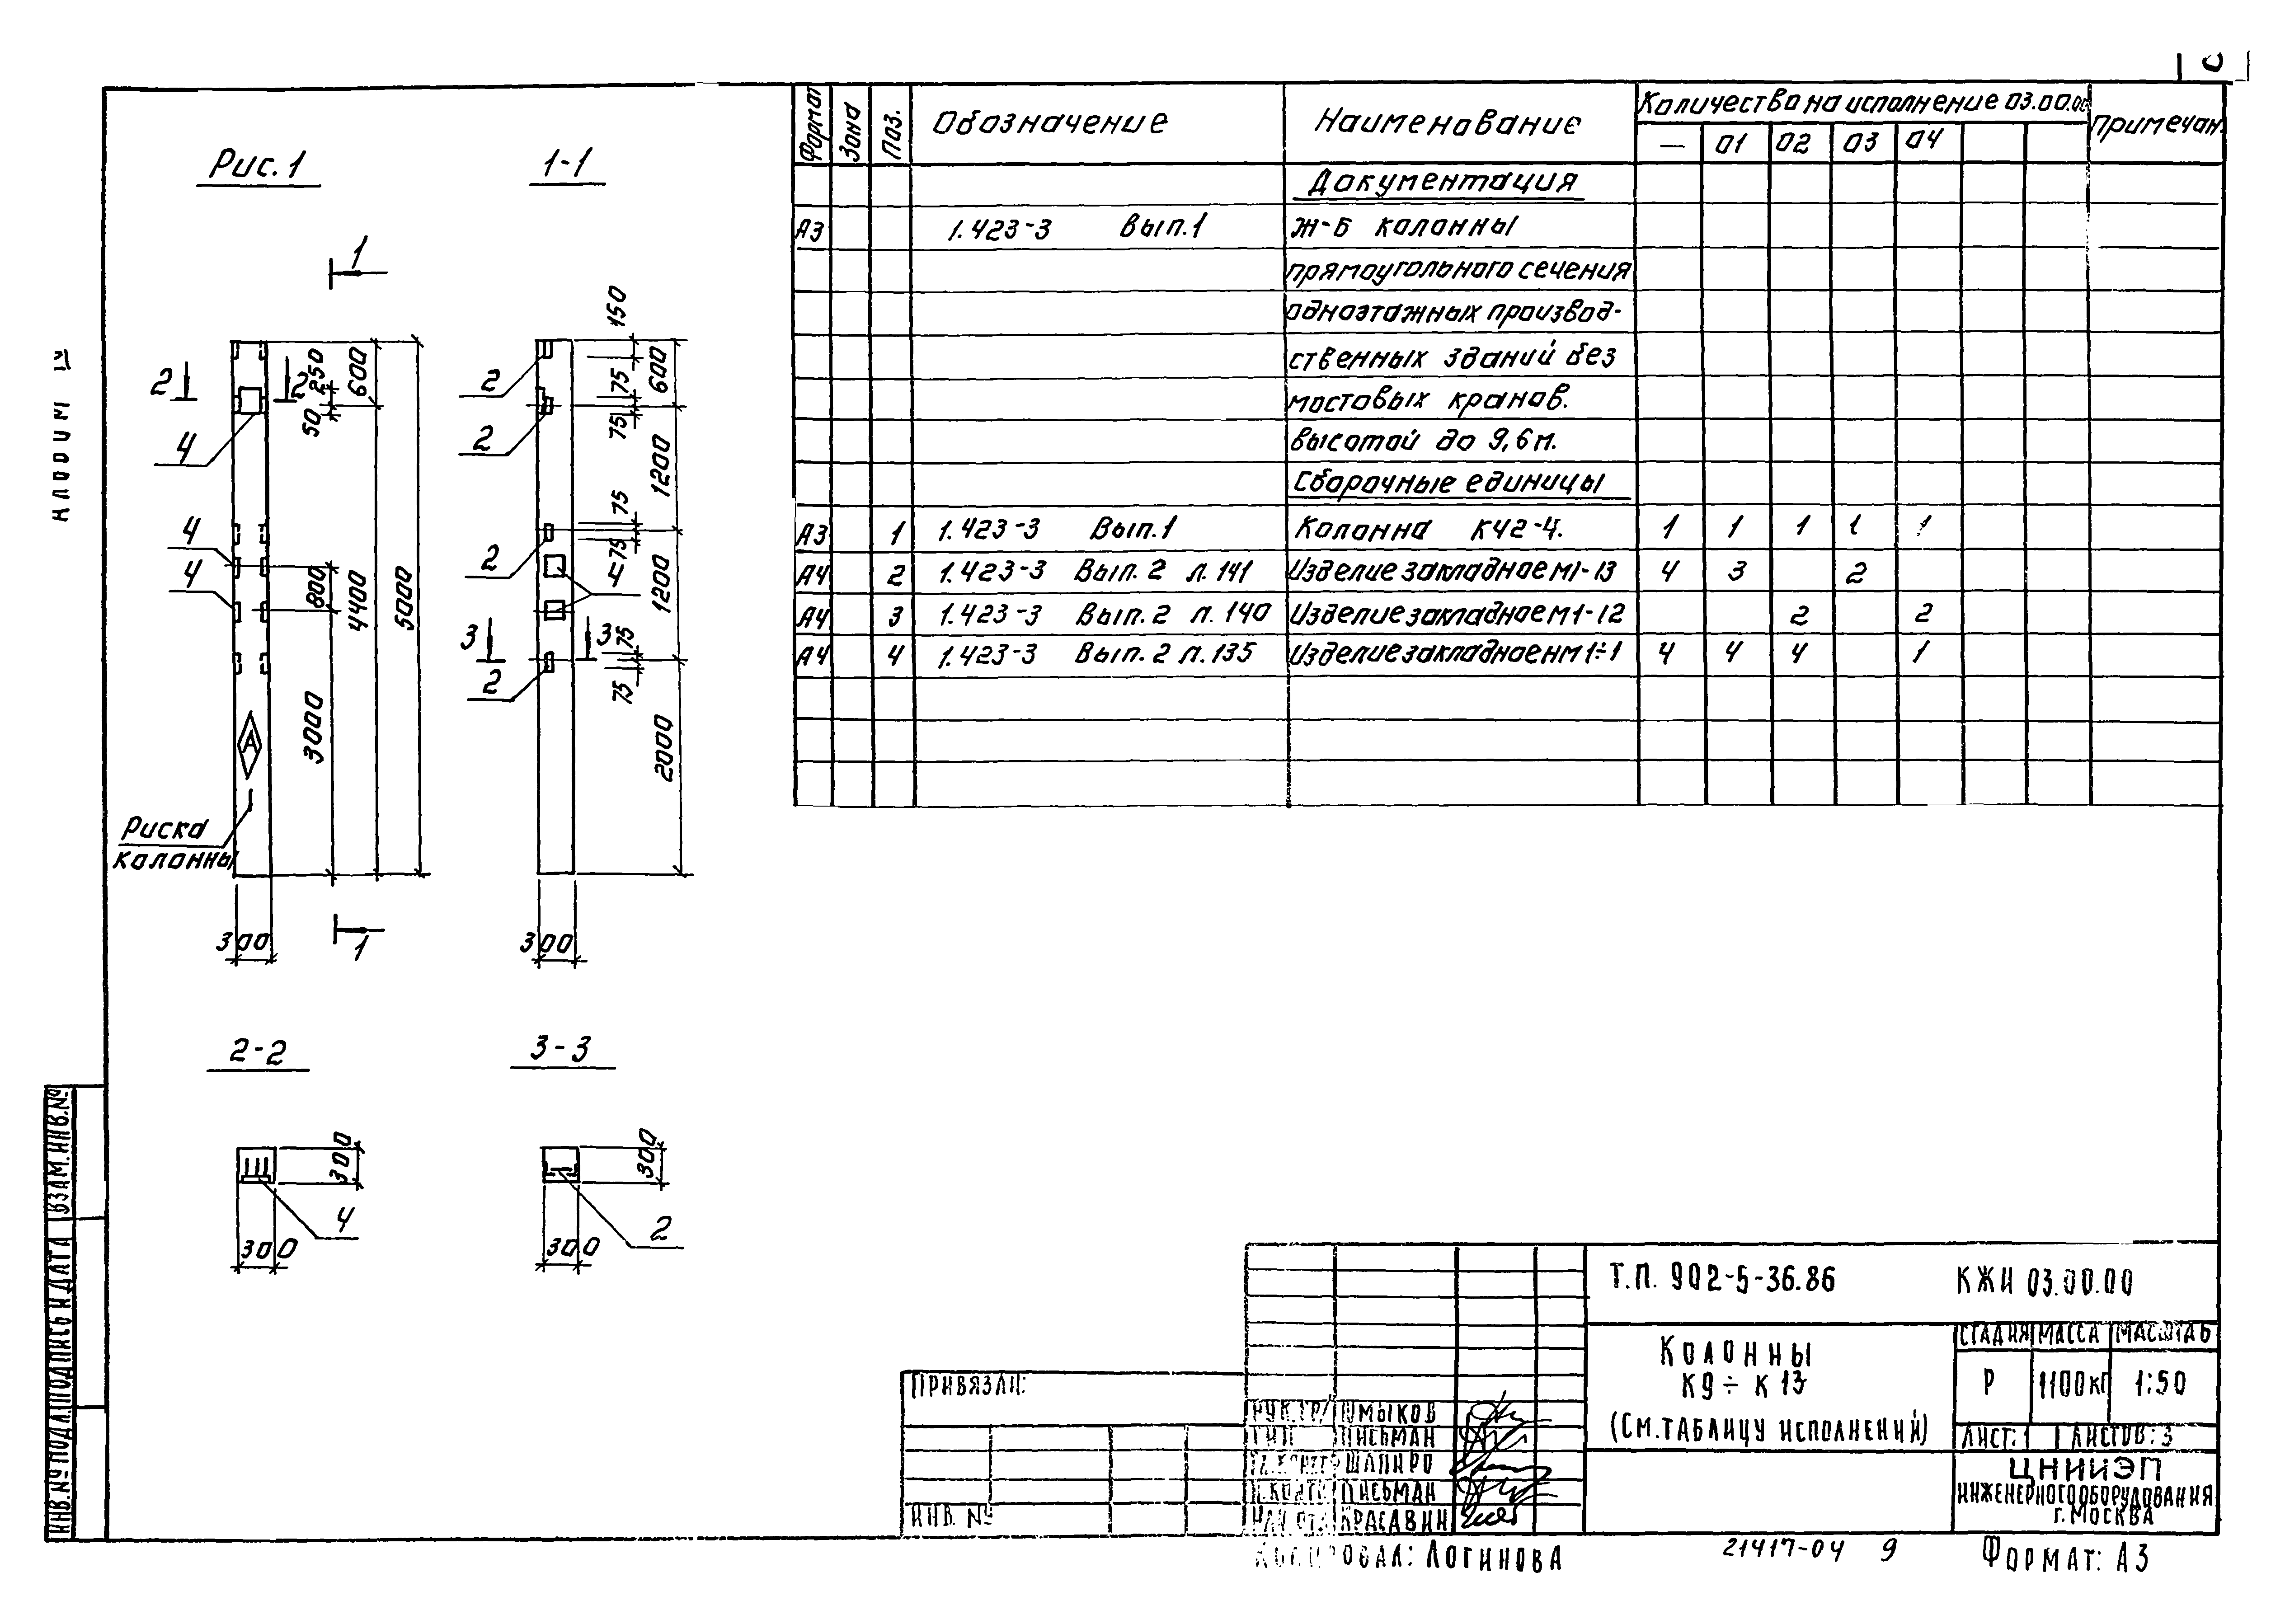 Альбом IV
Рис. 1
1-1
1
2
2
4
4
4
50
250
600
800
3000
4400
5000
А
Риска
колонны
300
1
2
2
2
3
3
2
4
150
75
75
600
1200
75
75
1200
75
75
2000
300
2-2
3-3
300
4
300
300
2
300
Формат Зона Поз. Обозначение Наименование Количество на исполнение 03.00.00 Примечан.
— 01 02 03 04
Документация
А3 1.423-3 Вып.1 Ж-Б колонны
прямоугольного сечения
одноэтажных производ-
ственных зданий без
мостовых кранов.
высотой до 9,6 м.
Сборочные единицы
А3 1 1.423-3 Вып.1 Колонна К42-4. 1 1 1 1 1
А4 2 1.423-3 Вып. 2 л. 141 Изделие закладное М1-13 4 3 2
А4 3 1.423-3 Вып. 2 л. 140 Изделие закладное М1-12 2 2
А4 4 1.423-3 Вып. 2 л. 135 Изделие закладное НМ1÷1 4 4 4 1
ИНВ.№ПОДЛ. ПОДПИСЬ И ДАТА ВЗАМ.ИНВ.№
Т.П. 902-5-36.86 КЖИ 03.00.00
Колонны
К9 ÷ К13
(См. таблицу исполнений)
СТАДИЯ МАССА МАСШТАБ
Р 1100кг 1:50
ЛИСТ: 1 ЛИСТОВ: 3
ЦНИИЭП
ИНЖЕНЕРНОГО ОБОРУДОВАНИЯ
г. МОСКВА
ПРИВЯЗАН:
ИНВ. №
РУК.ГР.
ГИП ПИСЬМАН
ШАПИРО
Н.КОНТР. ПИСЬМАН
НАЧ.ОТД. КРАСАВИН
Копировал: Логинова
21417-04 9
Формат: А3